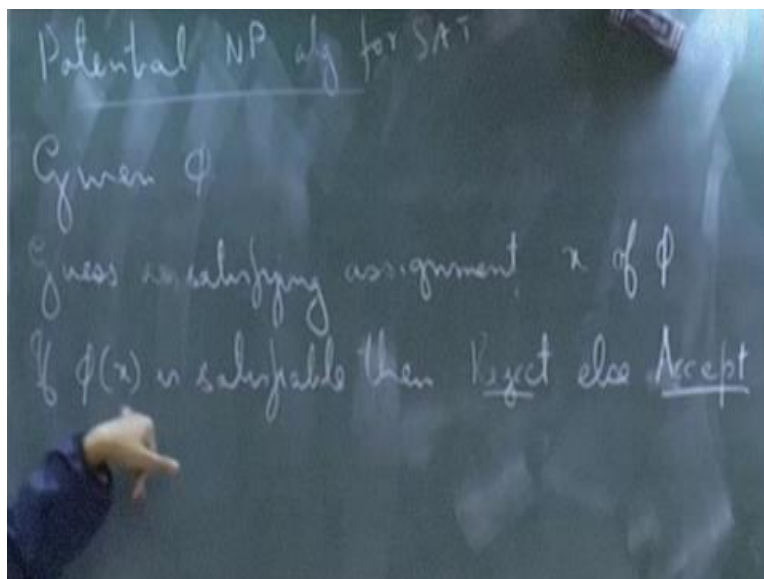 Potential NP alg for SAT
Given φ
Guess satisfying assignment x of φ
If φ(x) is satisfiable then Reject else Accept